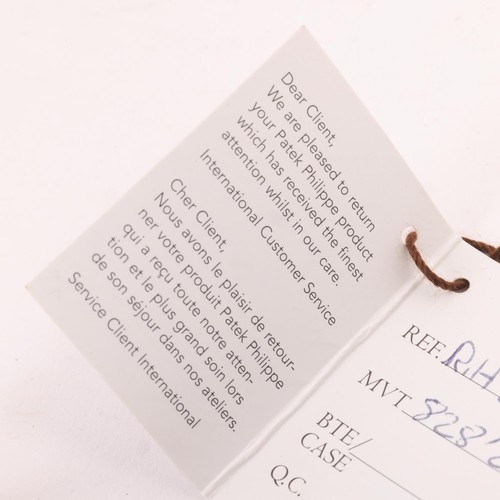 Dear Client,
We are pleased to return
your Patek Philippe product
which has received the finest
attention whilst in our care.
International Customer Service
Cher Client,
Nous avons le plaisir de retour-
ner votre produit Patek Philippe
qui a reçu toute notre atten-
tion et le plus grand soin lors
de son séjour dans nos ateliers.
Service Client International
REF.
MVT.
BTE/
CASE
Q.C.